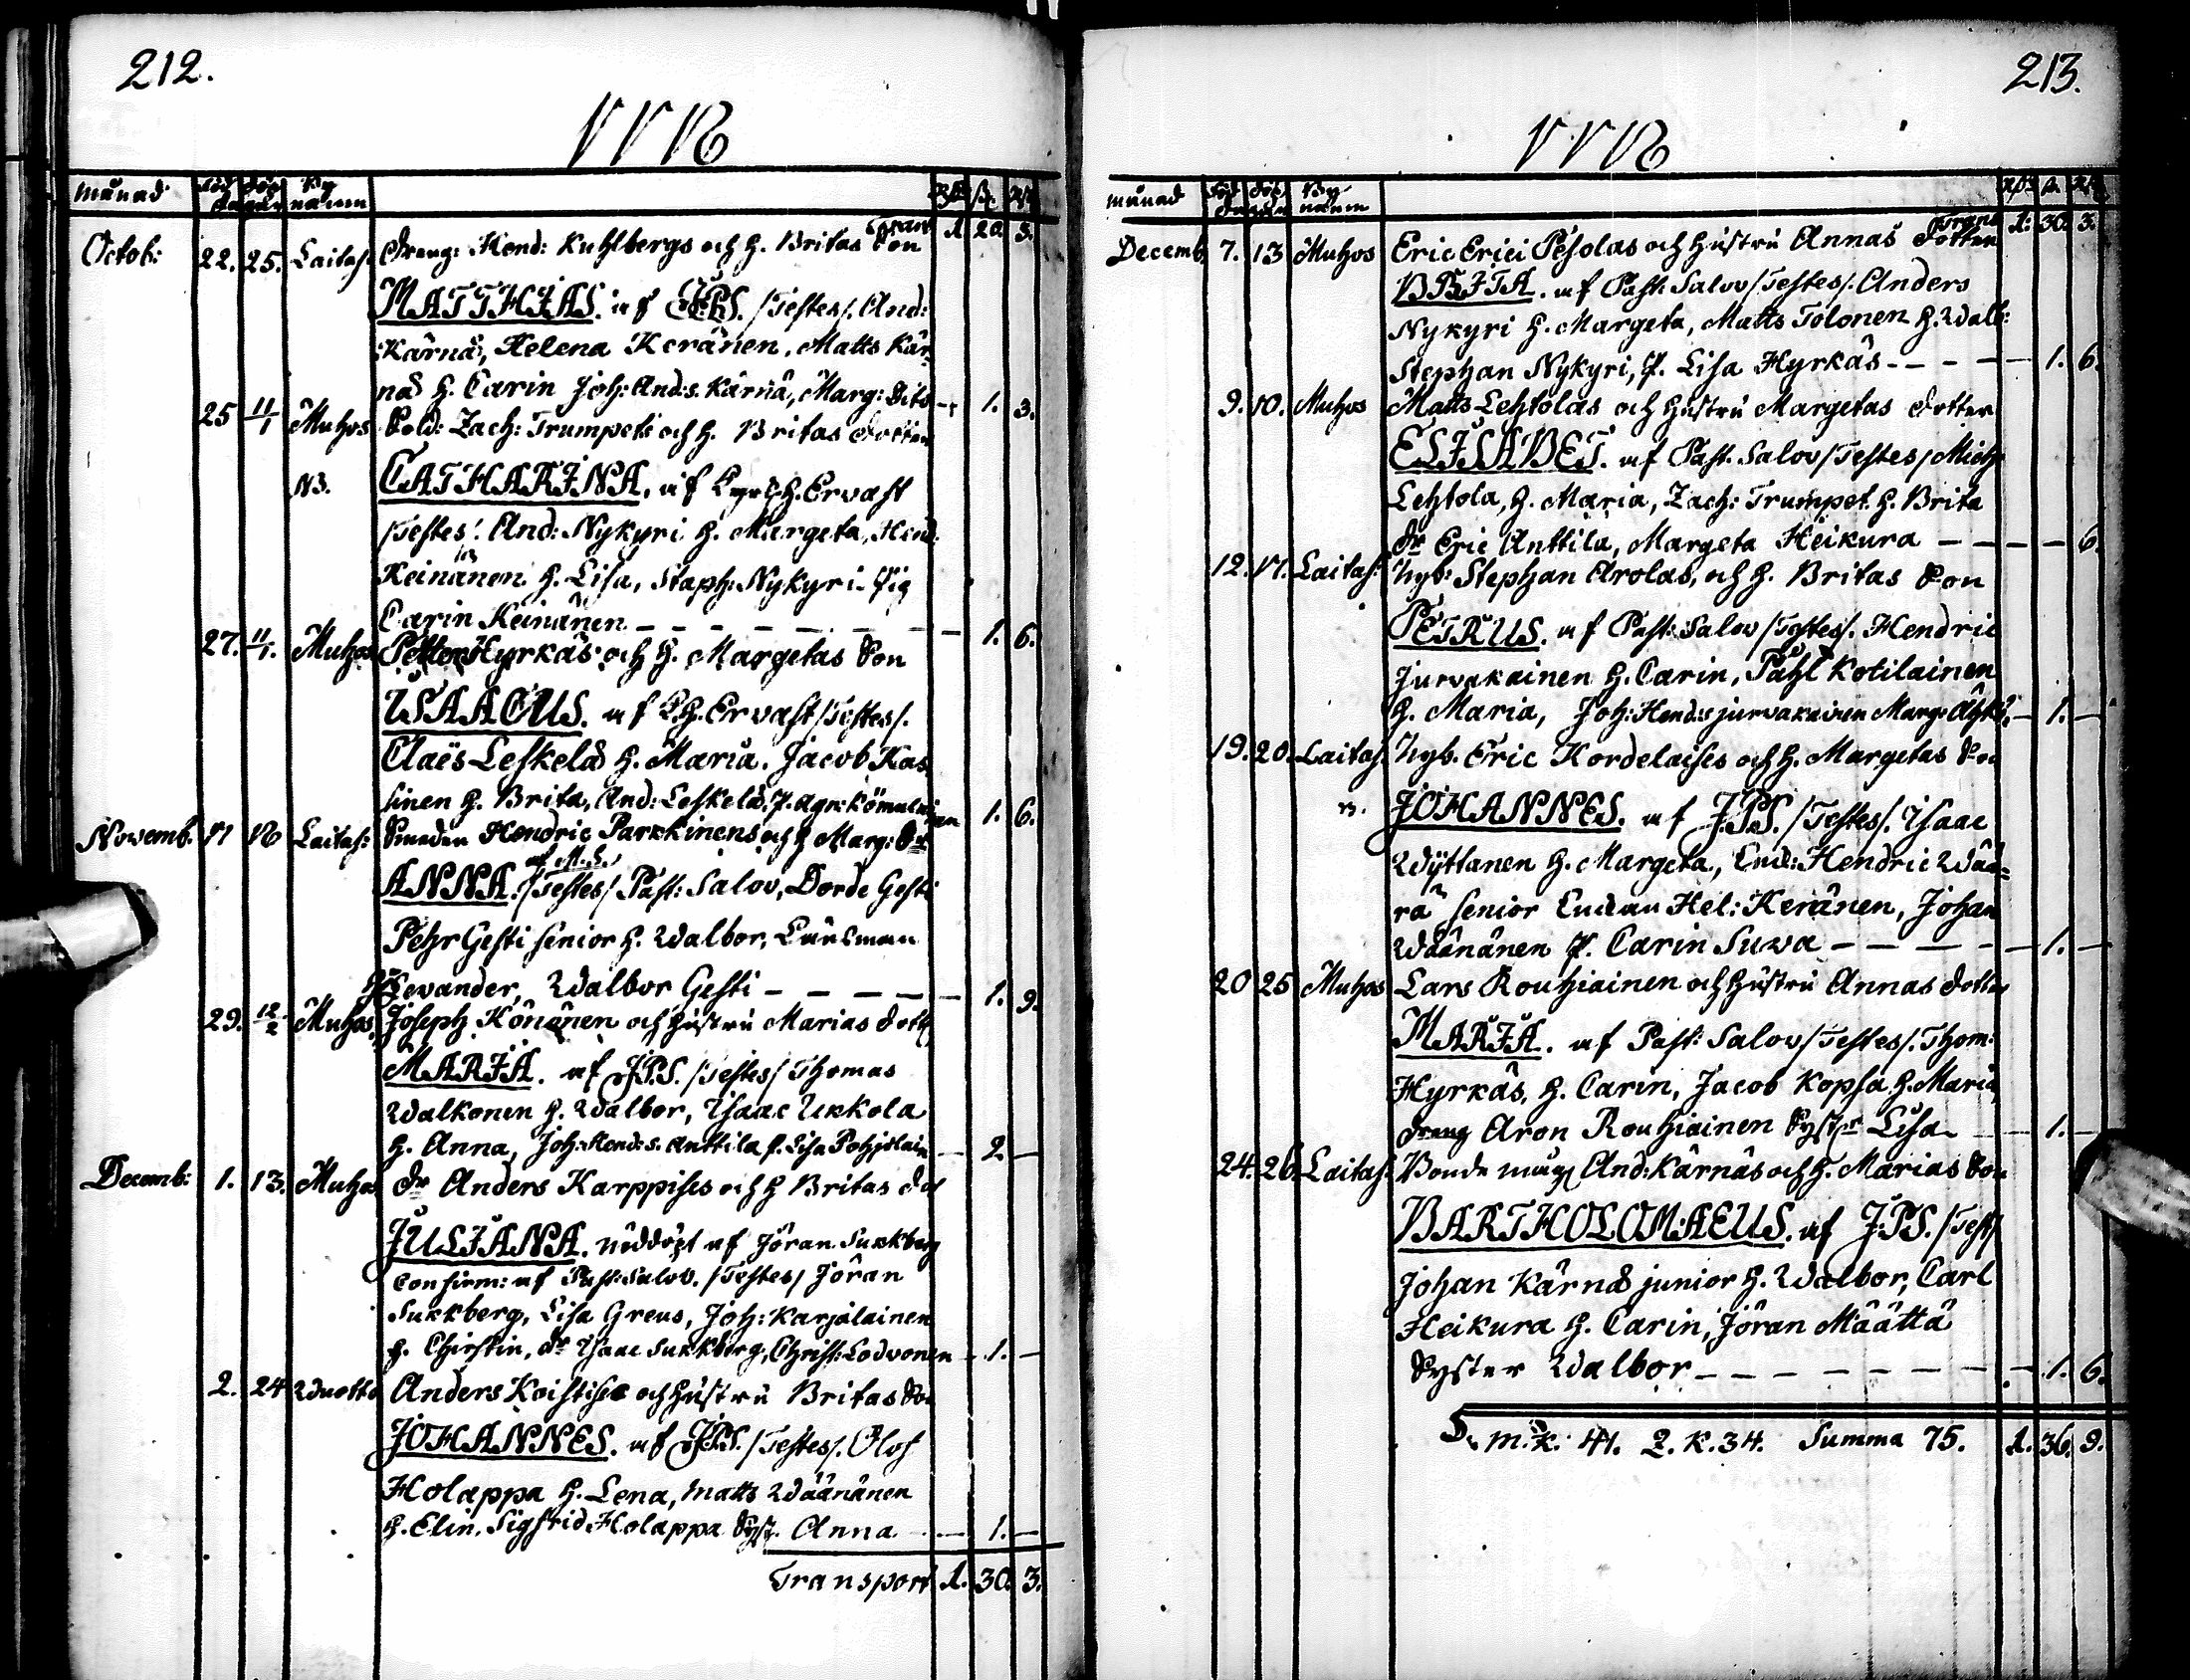 212.
1778
Månad
Föd Döp By
dagar namn
Rdr ß. rst
Trans 1. 20. 3.
Octob: 22. 25. Laitas. Dreng: Hend: Kuhlbergs och H. Britas Son
MATTHIAS. af JPS. /Testes/. And:
Kärnä, Helena Keränen, Matts Kär
nä H. Carin Joh: And:s. Kärnä, Marg: dito 1. 3.
25 11/1 Muhos Sold: Zach: Trumpets och H. Britas dotter
N3. CATHARINA. af H. Ervast
/Testes/. And: Nykyri H. Margeta, Hend:
Keinänen H. Lisa, Staph: Nykyri Pig
Carin Keinänen - - - - - - - 1. 6.
27. 11/1. Muhos Petter Hyrkäs och H. Margetas Son
ISAACUS. af C.H. Ervast /Testes/.
Claës Leskelä H. Maria. Jacob Kas
sinen H. Brita, And: Leskelä, P. Agn: Kömulainen 1. 6.
Novemb. 17 18 Laitas: Smeden Hendric Parkkinens och H Marg: Dr
af M.L.
ANNA. /Testes/ Past: Salov, Dorde Gesti
Pehr Gesti senior H. Walbor, Länsman
Levander, Walbor Gesti - - - - - 1. 9.
29. 12/2 Muhos. Joseph Könönen och Hustru Marias dott
MARIA. af J.P.S. /Testes/ Thomas
Walkonen H. Walbor, Isaac Ukkola
H. Anna, Joh: Hend:s. Anttila P. Lisa Pohjolain - 2 -
Decemb: 1. 13. Muhos dr Anders Karppises och H Britas dot
JULIANA. nöddöpt af Jöran Sukkberg
Confirm: af Past: Salov. /Testes/ Jöran
Sukkberg, Lisa Greus, Joh: Karjalainen
H. Christin, dr Isaac Sukkberg, Christ: Lodvonen - 1. -
2. 24 Wuotto Anders Koistises och Hustru Britas So
JOHANNES. af JPS. /Testes/. Olof
Holappa H. Lena, Matts Wäänänen
H. Elin. Sigfrid Holappa Syst. Anna - - 1. -
Transport 1. 30. 3.
213.
1778
Månad
Föd Döp By
dagar namn
Rdr ß. rst
Trans 1. 30. 3.
Decemb. 7. 13 Muhos Eric Erici Pesolas och Hustru Annas dotter
BRITA. af Past: Salov /Testes/. Anders
Nykyri H. Margeta, Matts Tolonen H. Walb:
Stephan Nykyri, P. Lisa Hyrkäs - - - - 1. 6.
9. 10. Muhos Matts Lehtolas och Hustru Margetas dotter
ELISABET. af Past. Salov /Testes/ Mich
Lehtola, H. Maria, Zach: Trumpet H. Brita
dr Eric Anttila, Margeta Heikura - - - - 6.
12. 17. Laitas: Nyb: Stephan Arolas, och H. Britas Son
PETRUS. af Past: Salov /Testes/. Hendric
Jurvakainen H. Carin, Påhl Kotilainen
H. Maria, Joh: Hend:s Jurvakainen Marg: - 1. -
19. 20. Laitas. Nyb. Eric Kordelaises och H. Margetas So
JOHANNES. af J.P.S. /Testes/. Isaac
Wyttanen H. Margeta, Hendric Wää-
rä senior Hel: Keränen, Johan
Wäänänen P. Carin Suwa - - - - 1. -
20 25 Muhos Lars Rouhiainen och Hustru Annas dotter
MARIA. af Past: Salov /Testes/. Thom:
Hyrkäs, H. Carin, Jacob Kopsa H. Maria
dreng Aron Rouhiainen Systr Lisa - 1. -
24. 26. Laitas. Bonde And: Kärnäs och H. Marias Son
BARTHOLOMAEUS. af J.P.S. /Test/
Johan Kärnä junior H. Walbor, Carl
Heikura H. Carin, Jöran Määttä
Syster Walbor - - - - - - - - 1. 6.
S. M.K. 41. Q.K. 34. Summa 75. 1. 36. 9.